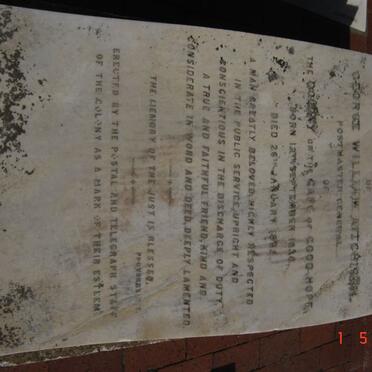 OF
GEORGE WILLIAM AITCHISON
POSTMASTER GENERAL
OF
THE COLONY OF THE CAPE OF GOOD HOPE
BORN 12TH SEPTEMBER
DIED 26 JANUARY
A MAN GREATLY BELOVED, HIGHLY RESPECTED
IN THE PUBLIC SERVICE, UPRIGHT AND
CONSCIENTIOUS IN THE DISCHARGE OF DUTY.
A TRUE AND FAITHFUL FRIEND, KIND AND
CONSIDERATE IN WORD AND DEED, DEEPLY LAMENTED.
THE MEMORY OF THE JUST IS BLESSED.
PROVERBS
ERECTED BY THE POSTAL AND TELEGRAPH STAFF
OF THE COLONY AS A MARK OF THEIR ESTEEM
1 5